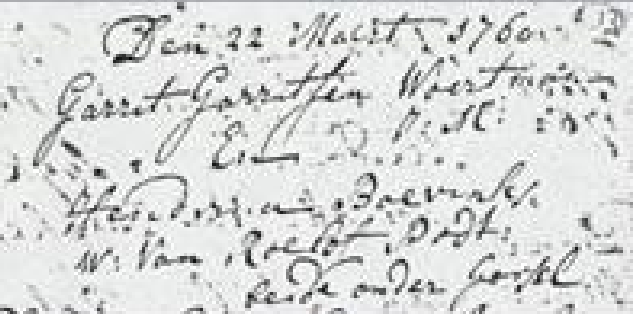 Den 22 Maert 1760
Garrit Garritsen Woertman
J: M:
En
Hendersina Boerink
W: Van Roelof Podt
beide onder Gorsel